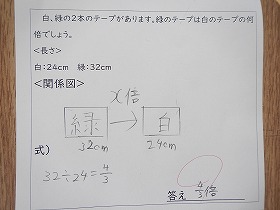 白、緑の2本のテープがあります。緑のテープは白のテープの何
倍でしょう。
<長さ>
白：24cm　緑：32cm
<関係図>
x倍
緑 → 白
32cm　24cm
式）
32÷24=4/3
答え 4/3倍